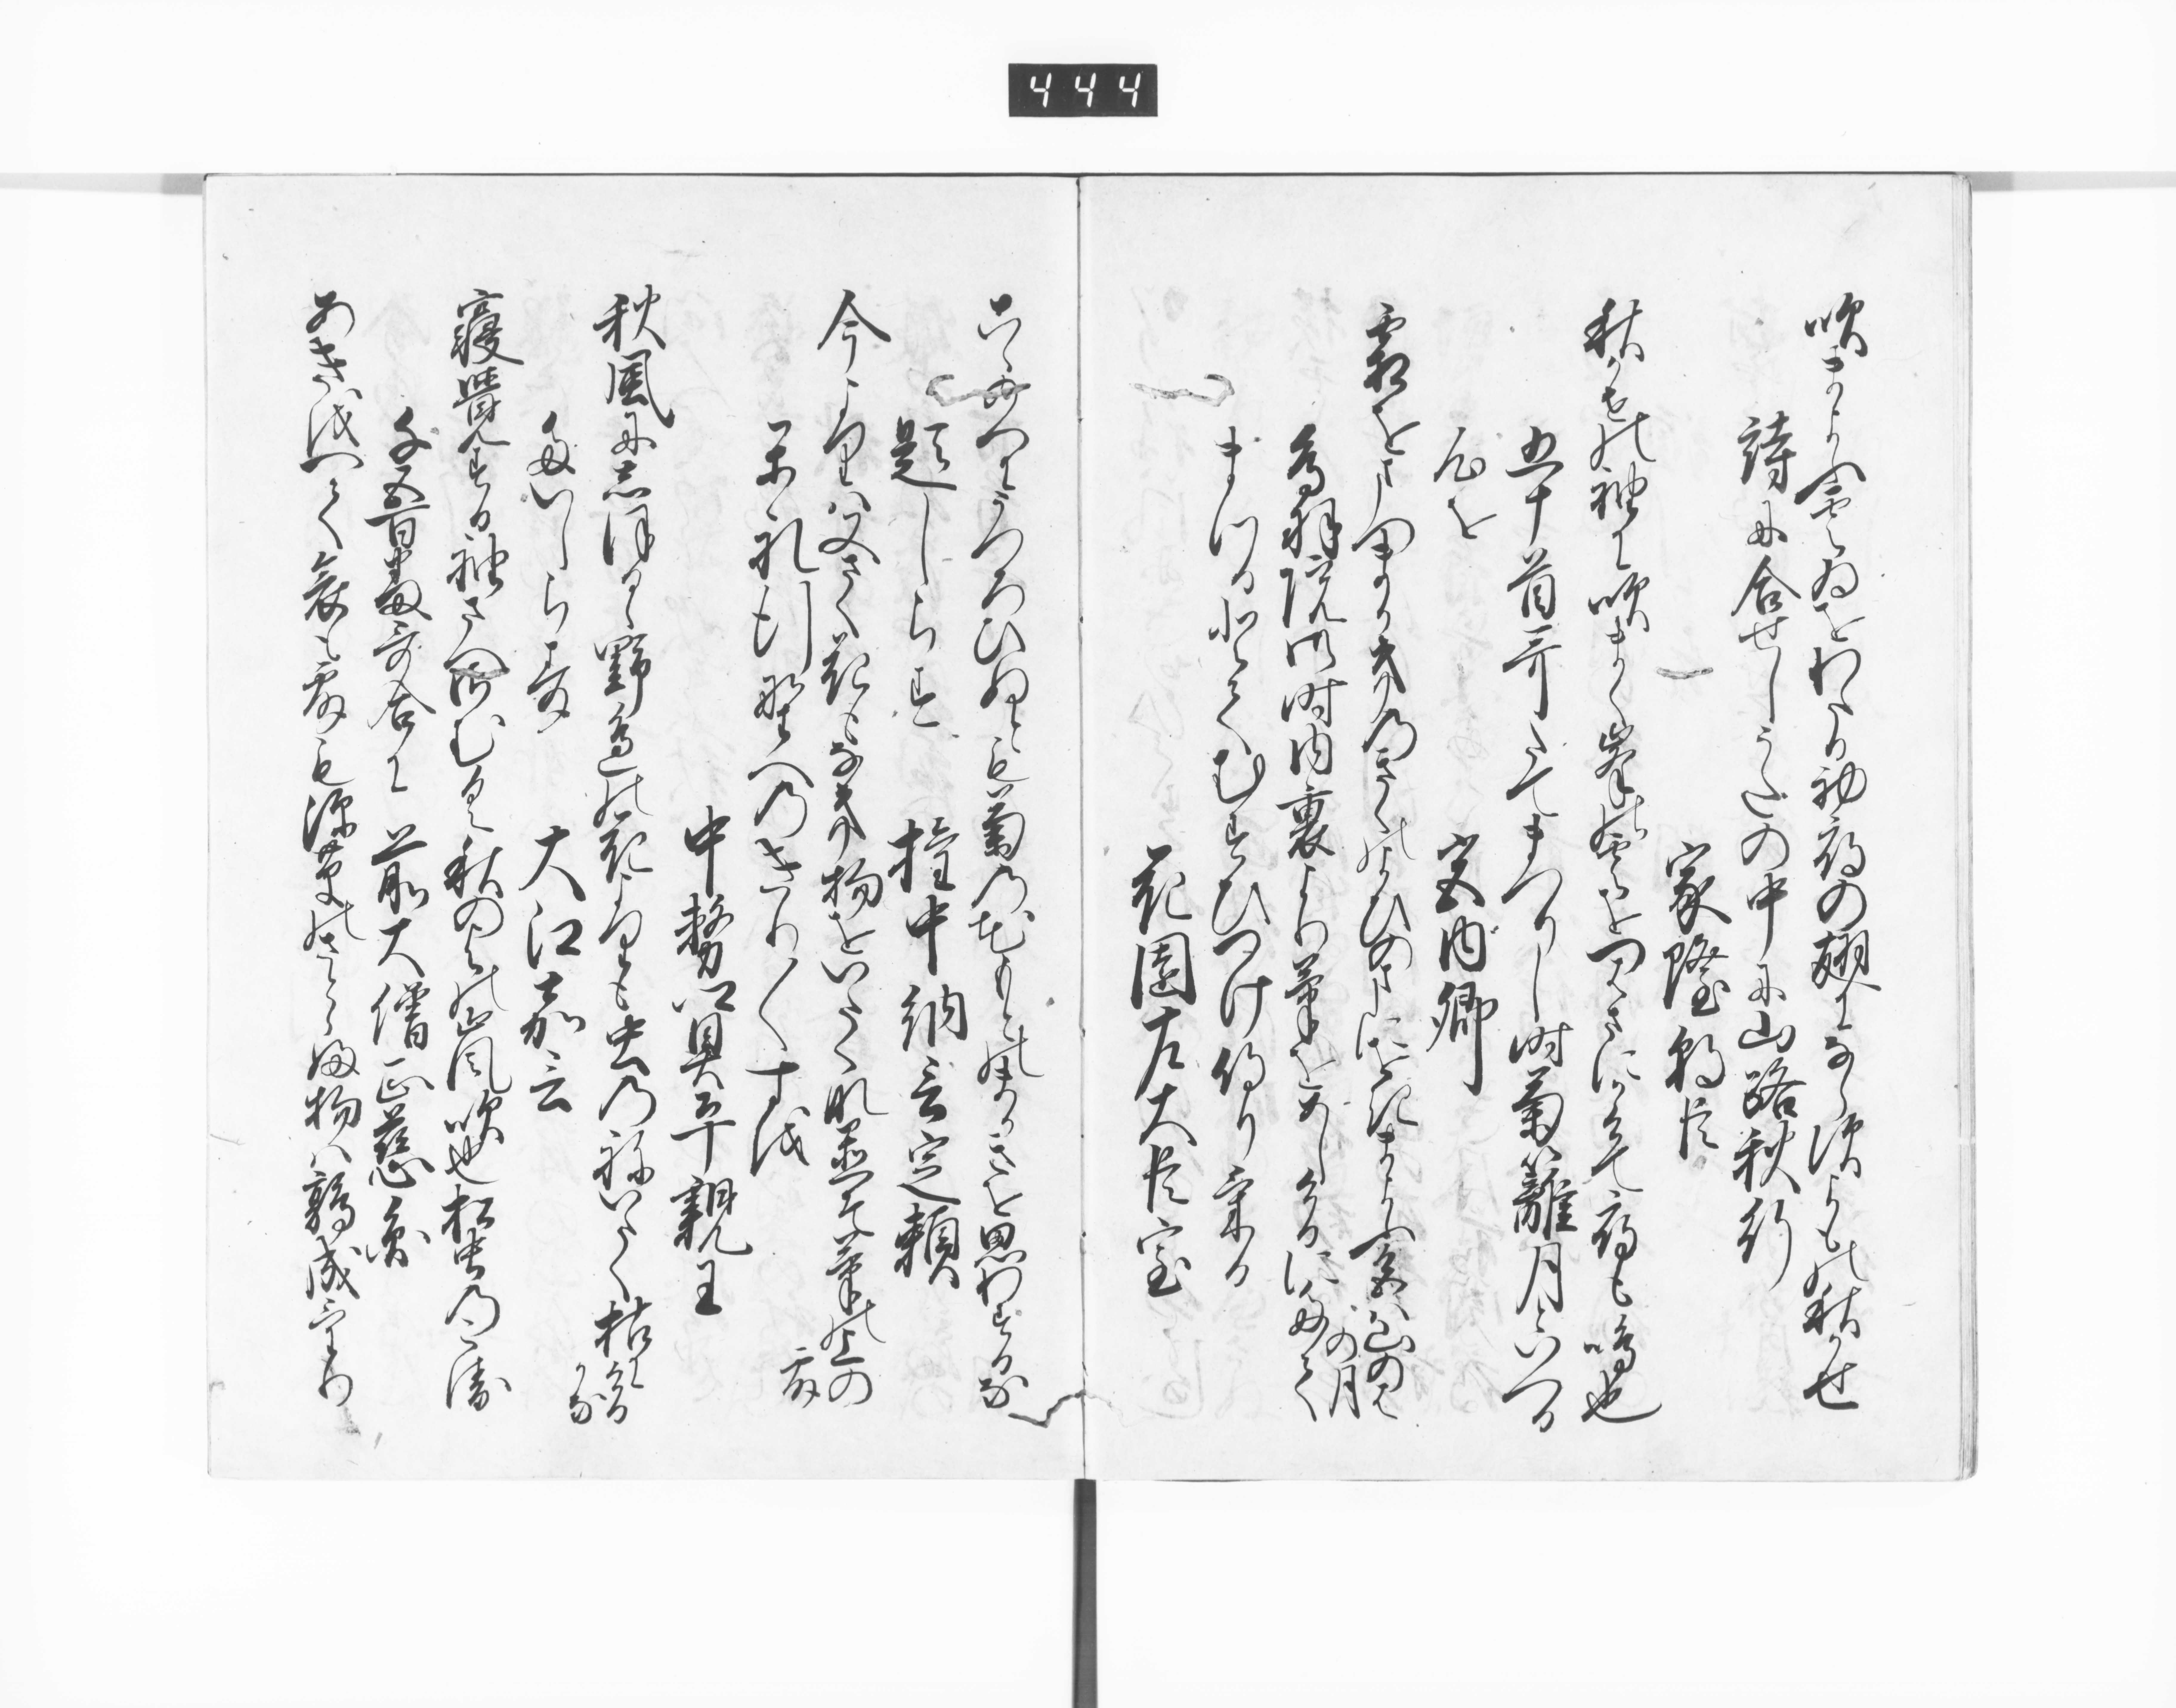 444
吹まよふ雲ゐをわたる初雁の翅にならすよもの秋かせ
詩に合せしうたの中に山路秋行
家隆朝臣
秋かせの袖に吹まく峯の雲をつはさにかけて雁も鳴也
五十首哥たてまつりし時菊籬月といへる
心を
宮内卿
霜をまつまかきの菊のよひのまにをきまよふ色は山のはの月
鳥羽院御時内裏より菊をめしけるにたてまつるとてむすひつけ侍りける
花園左大臣室
こゝのへにうつろひぬとも菊の花もとのまかきを思わするな
題しらす
権中納言定頼
今よりは又さく花もなき物をいたくなをきそ菊の上の露
かれ行野へのきり〳〵す哉
中務卿具平親王
秋風にしほるゝ野邊の花よりも虫のねいたくかれにけるかな
たいしらす
大江嘉言
寝覚する袖さへさむく秋のよの嵐吹也松虫の声
千五百番哥合に
前大僧正慈円
あきをへて哀も露もふかくさのさとゝふ物は鶉成けり